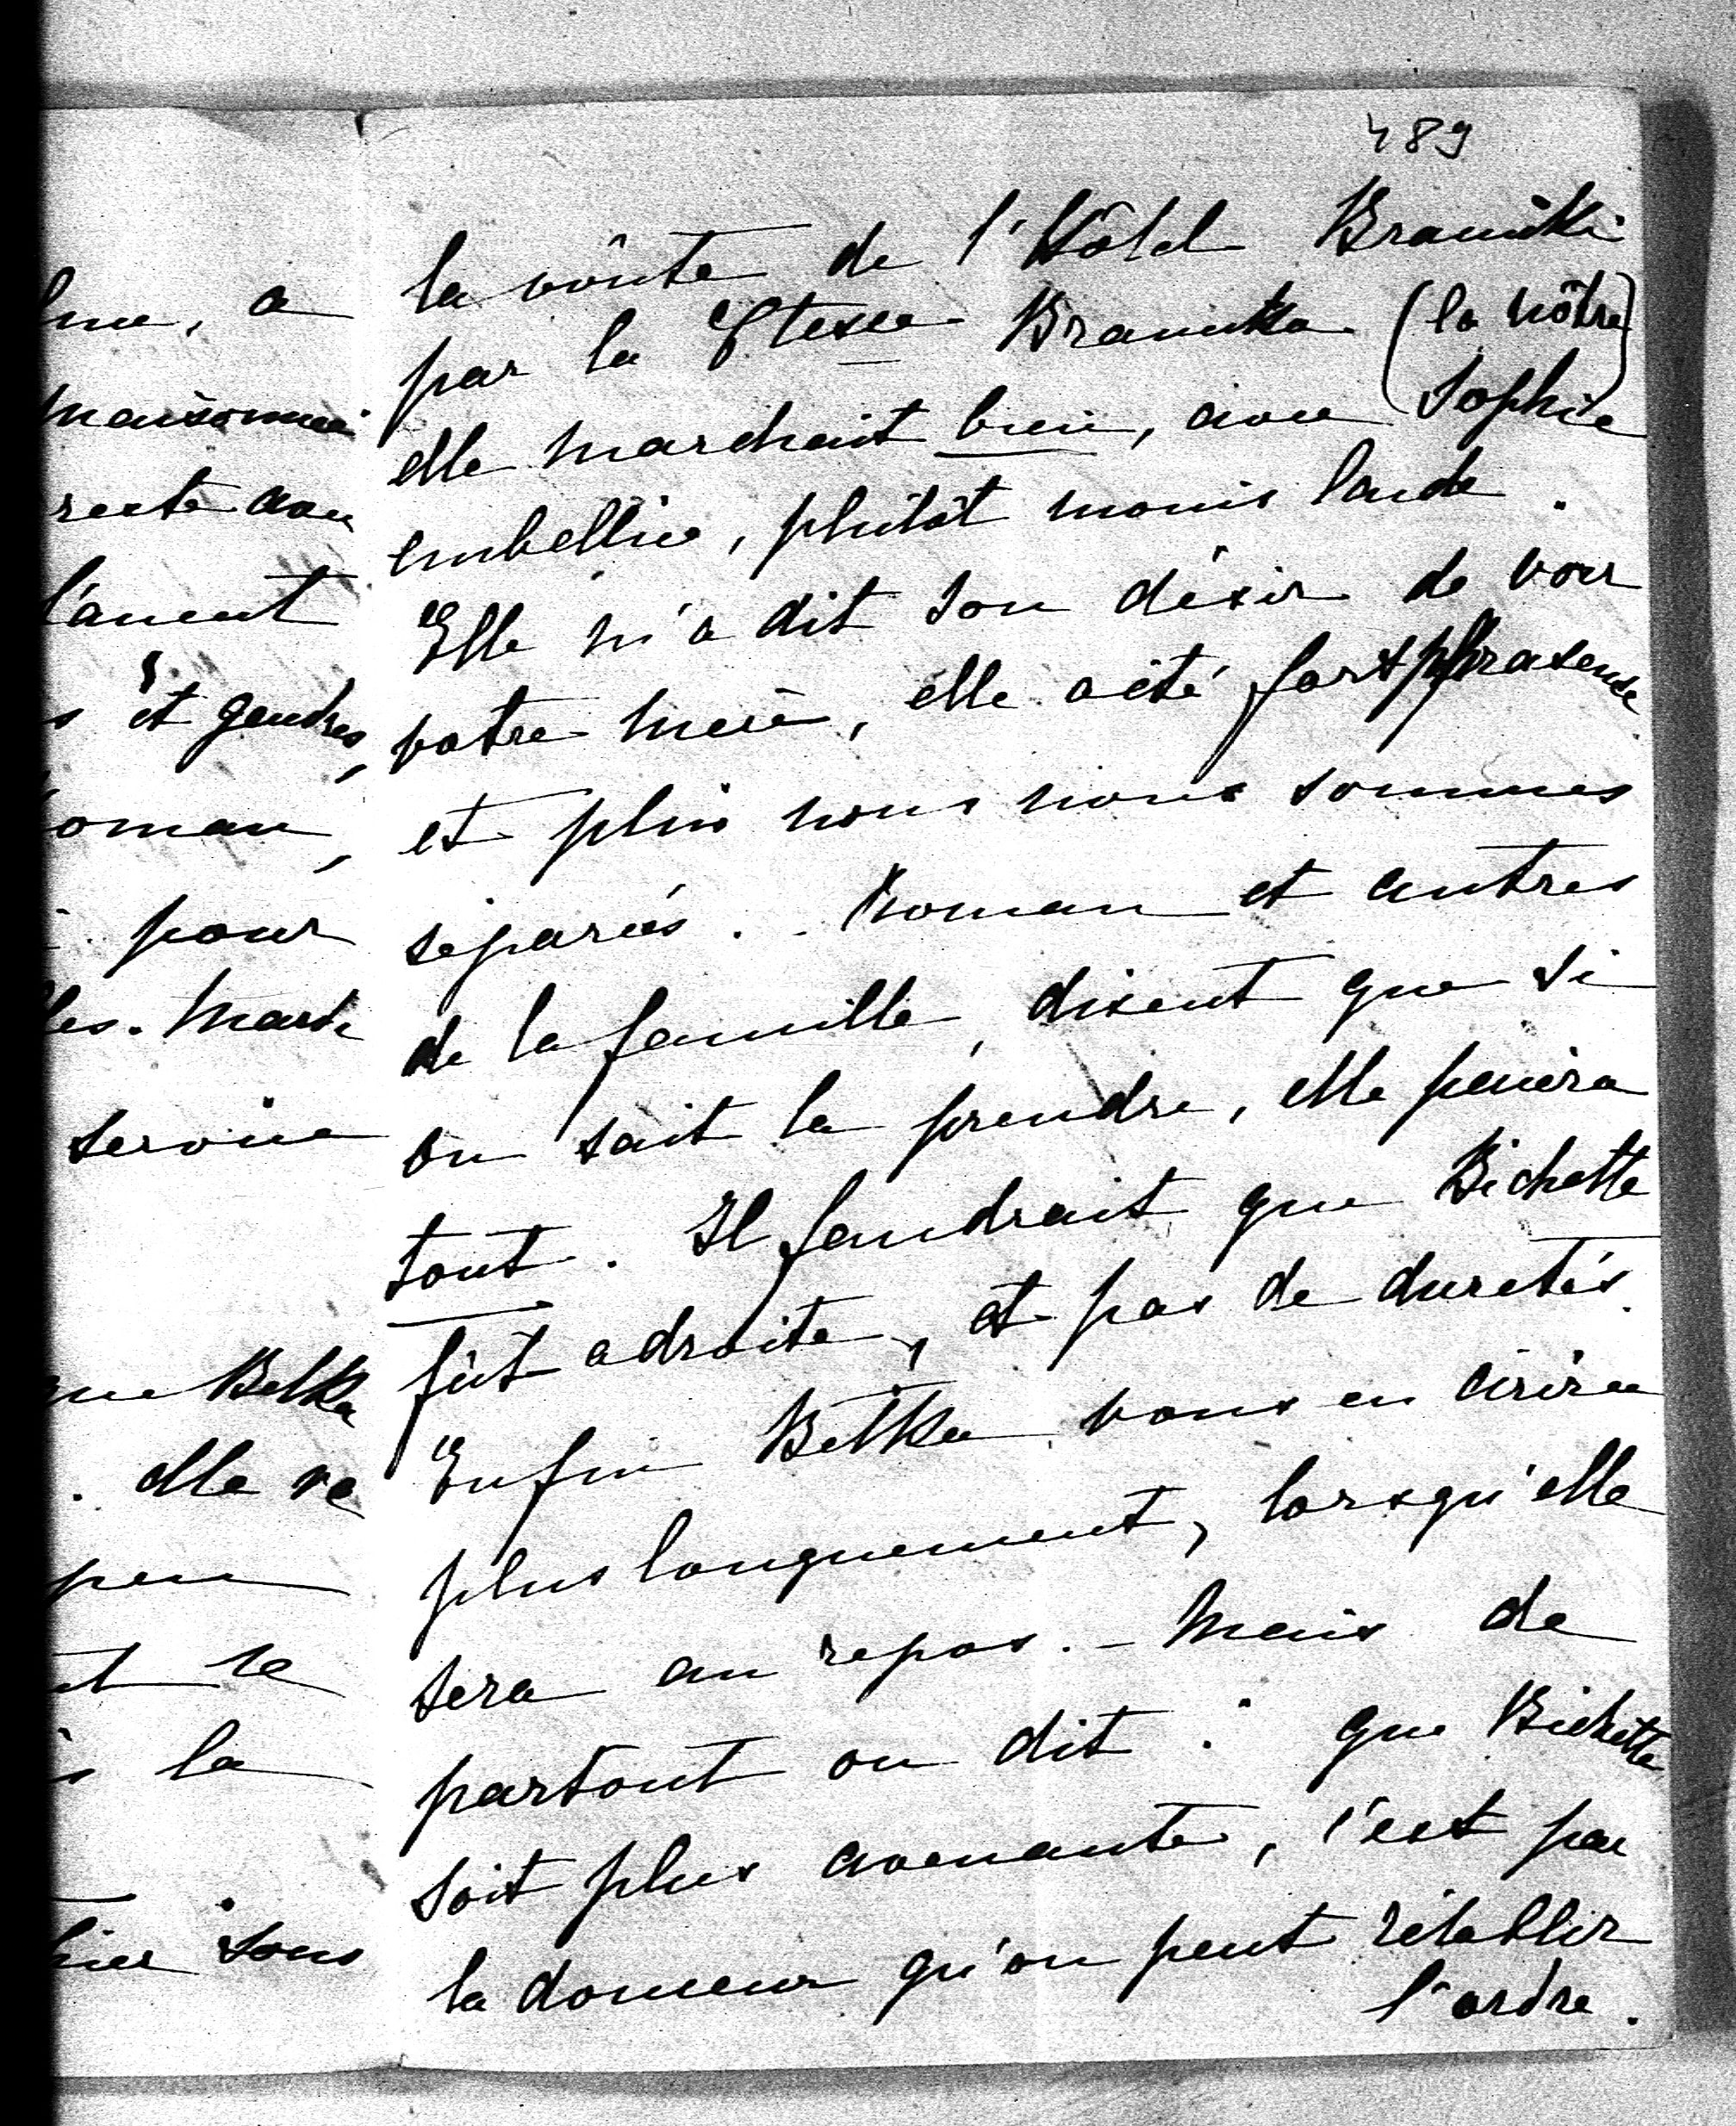 489
la voûte de l'Hôtel Branicki
par la Ctesse Branicka (la nôtre)
elle marchait bien, avec Sophie
embellie, plûtôt moins laide.
Elle m'a dit son désir de voir
votre mère, elle a été fort phraseuse
et puis nous nous sommes
séparés. . Roman et autres
de la famille, disent que si
on sait la prendre, elle paiera
tout. Il faudrait que Bichette
fût adroite, et pas de duretés.
Enfin Betka vous en écrira
plus longuement, lorsqu'elle
sera au repos. - Mais de
partout on dit : que Bichette
soit plus avenante, c'est par
la douceur qu'on peut rétablir
l'ordre.
, a
et gendres,
pour
service
Betka
. elle re
peu
la
sous